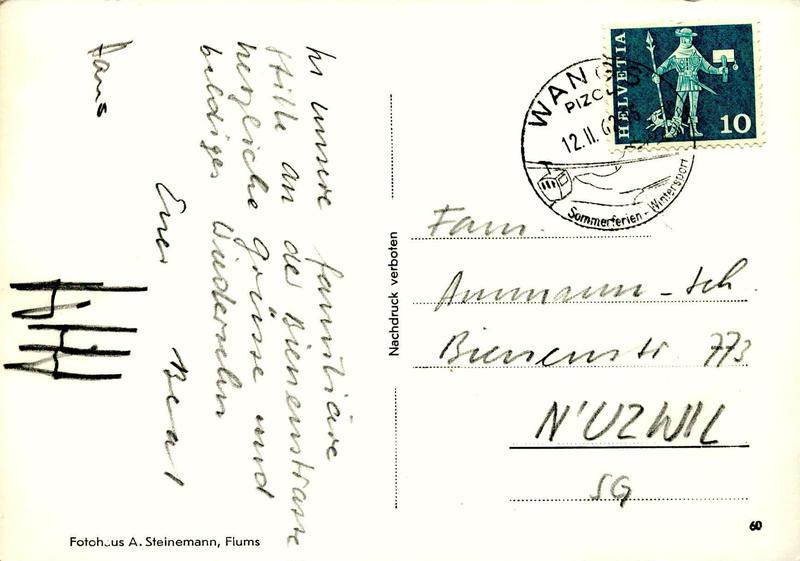 In unsere familiäre
Stille an der Bienenstrasse
herzliche Grüsse und
baldiges Wiedersehn
Euer Beat
Hans
Nachdruck verboten
WANGS
PIZOL
12.II.62
Sommerferien - Wintersport
HELVETIA
10
Fam.
Ammann-Sch.
Bienenstr. 773
N'UZWIL
SG
60
Fotohaus A. Steinemann, Flums